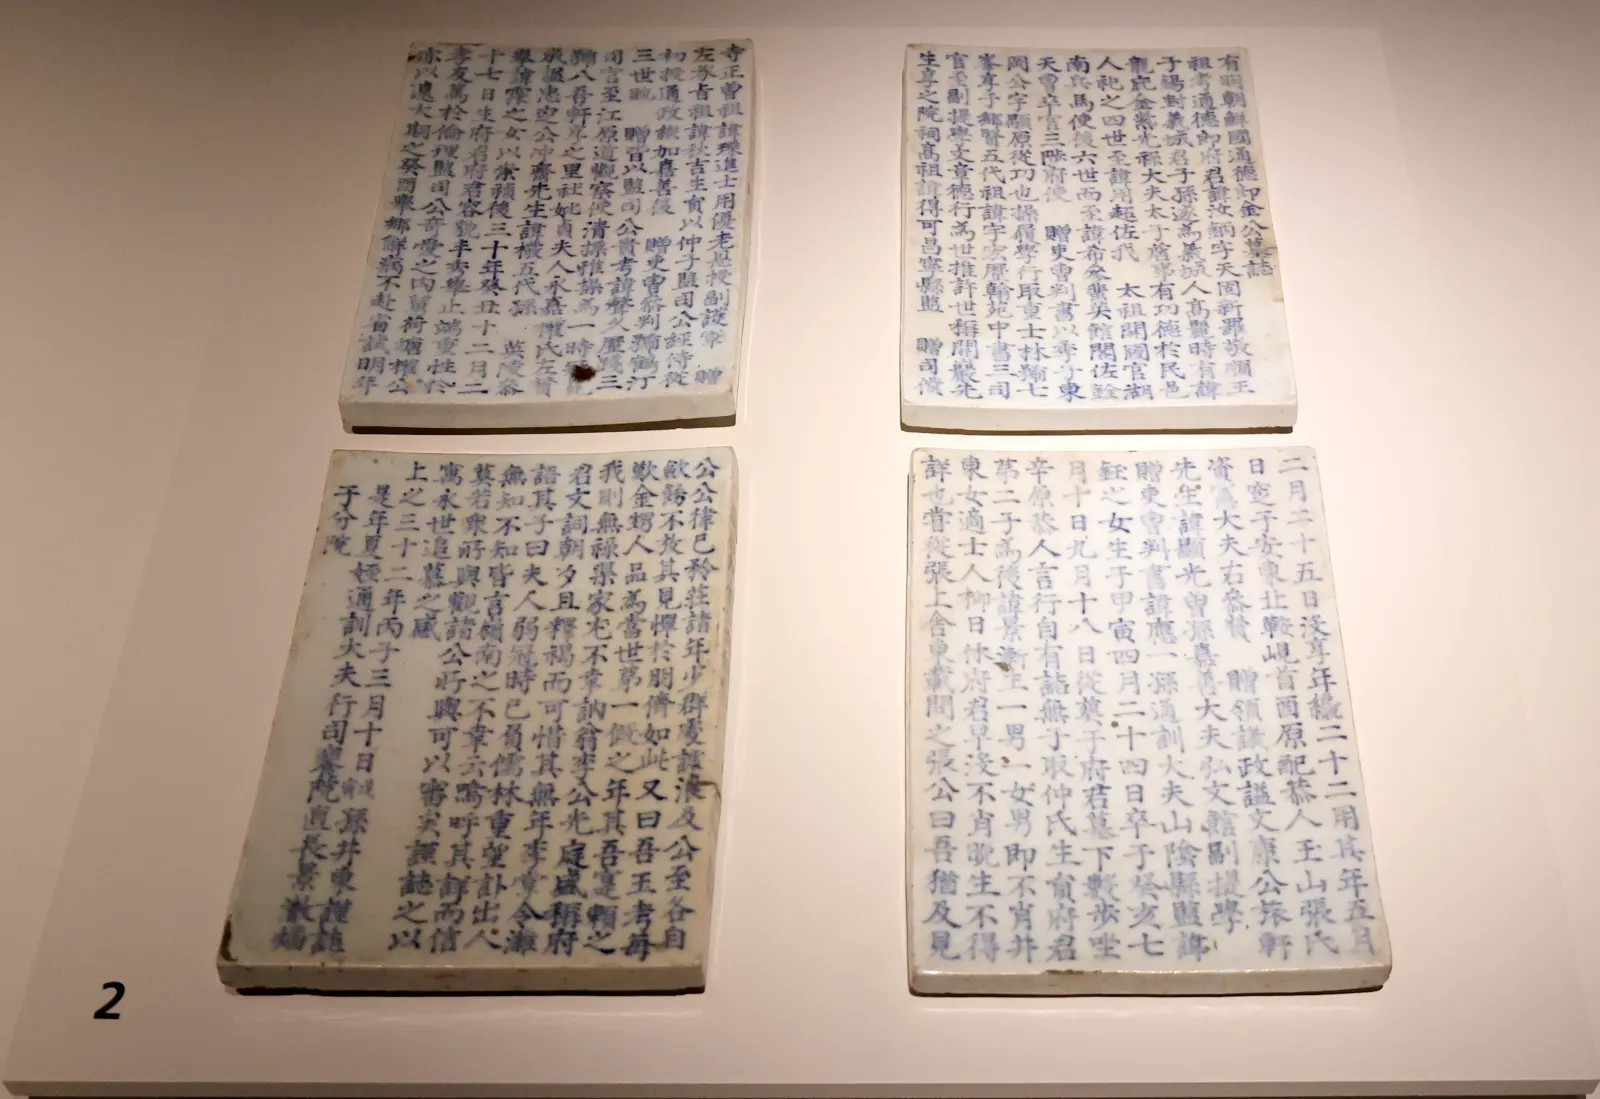 有明朝鮮國通德郎金公墓誌
祖考通德郎府君諱汝鈉字天固新羅敬順王
子錫封義城君子孫遂為義城人高麗時有諱
龍庇金紫光祿大夫太子詹事有功德於民邑
人祀之四世至諱用超佐我 太祖開國官湖
南兵馬使後六世而至諱希參
天曹卒官三陟府使 贈吏曹判書以季子東
岡公字顒原從功也操履學行取重士林號七
峯享于鄉賢五代祖諱宇宏歷翰苑中書三司
官至副提學文章德行為世推許世稱開巖先
生享之院祠高祖諱得可昌寧縣監 贈司僕
寺正曾祖諱 進士用優老恩授副護軍 贈
左承旨祖諱秋吉生員以仲子監司公經侍從
初授通政繼加嘉善後 贈吏曹參判號鶴汀
三世 贈皆以監司公貴考諱聲久歷踐三
司官至江原道觀察使清操雅 為一時
號八吾軒享之里社妣貞夫人永嘉權氏左贊
成諡忠定公冲齋先生諱橃五代孫 英陵參
奉諱霂之女以崇禎後三十年癸丑十二月二
十七日生府君府君容貌丰秀舉止端重性於
孝友篤於倫理監司公奇愛之內舅荷塘權公
亦以遠大期之癸酉舉鄉解病不赴省試明年
二月二十五日沒享年纔二十二用其年五月
日窆于安東北鞍峴首酉原配恭人玉山張氏
資憲大夫右參贊 贈領議政諡文康公旅軒
先生諱顯光曾孫嘉善大夫弘文館副提學
贈吏曹判書諱應一孫通訓大夫山陰縣監諱
鈺之女生于甲寅四月二十四日卒于癸亥七
月十日九月十八日從葬于府君墓下數步坐
辛原恭人言行自有誌無子取仲氏生員府君
第二子為後諱景 生一男一女男即不肖井
東女適士人柳日休府君早沒不肖晚生不得
詳也嘗從張上舍東 聞之張公曰吾猶及見
公公律己矜莊諸年少群處諠浪及公至各自
斂飭不放其見憚於朋儕如此又曰吾王考每
歎金甥人品為當世第一 之年其吾寔賴之
我則無祿渠家尤不幸訥翁李公光庭盛稱府
君文詞朝夕且釋褐而可惜其無年李掌令
語其子曰夫人弱冠時已負儒林重望訃出人
無知不知皆言嶺南之不幸云嗚呼其詳而信
莫若衆所與觀諸公所與可以審矣謹誌之以
寓永世追慕之感
上之三十二年丙子三月十日 孫井東謹誌
是年夏姪通訓大夫行司饔院直長景 燔
于分院
2